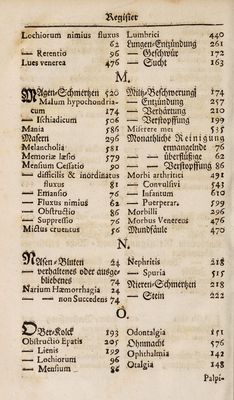 Register
Lochiorum nimius fluxus
62
— — Retentio 96
Lues venerea 476
Lumbrici 440
Lungen-Entzündung 261
— — Geschwür 172
— — Sucht 163
M.
Magen-Schmertzen 520
Malum hypochondria-
cum 174
— — Ischiadicum 506
Mania 586
Masern 296
Melancholia 581
Memoriæ læsio 579
Mensium Cessatio 90
— difficilis & inordinatus
fluxus 81
— — Emansio 76
— — Fluxus nimius 62
— — Obstructio 86
— — Suppressio 76
Mictus cruentus 56
Miltz-Beschwerung 174
— — Entzündung 257
— — Verhärtung 210
— — Verstopffung 199
Miserere mei 535
Monathliche Reinigung
ermangelnde 76
— — überflüßige 62
— — Verstopffung 86
Morbi arthritici 491
— — Convulsivi 543
— — Infantum 610
— — Puerperar. 599
Morbilli 296
Morbus Venereus 476
Mundfäule 470
N.
Nasen-Bluten 24
— verhaltenes oder ausge-
bliebenes 74
Narium Hæmorrhagia 24
— — non Succedens 74
Nephritis 218
— — Spuria 515
Nieren-Schmertzen 218
— — Stein 222
O.
Ober-Kolck 193
Obstructio Epatis 205
— — Lienis 199
— — Mensium 86
Odontalgia 151
Ohnmacht 576
Ophthalmia 142
Otalgia 148
Palpi-